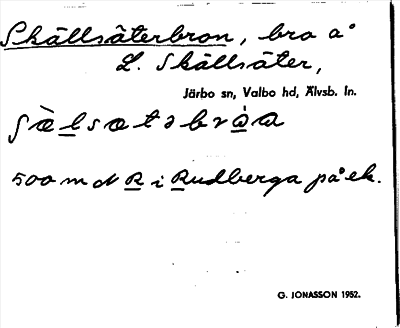 Skällsäterbron, bro å
L. Skällsäter,
Järbo sn, Valbo hd, Älvsb. ln.
ʃæ̀lsætəbrȧ̀a
500 m N R i Rudberga på ek.
G. JONASSON 1952.